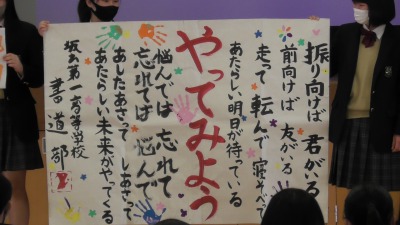 振り向けば 君がいる
前向けば 友がいる
走って 転んで 寝そべって
あたらしい明日が待っている
やってみよう
悩んでは 忘れて
忘れては 悩んで
あしたあさって しあさって
あたらしい未来がやってくる
坂出第一高等学校
書道部